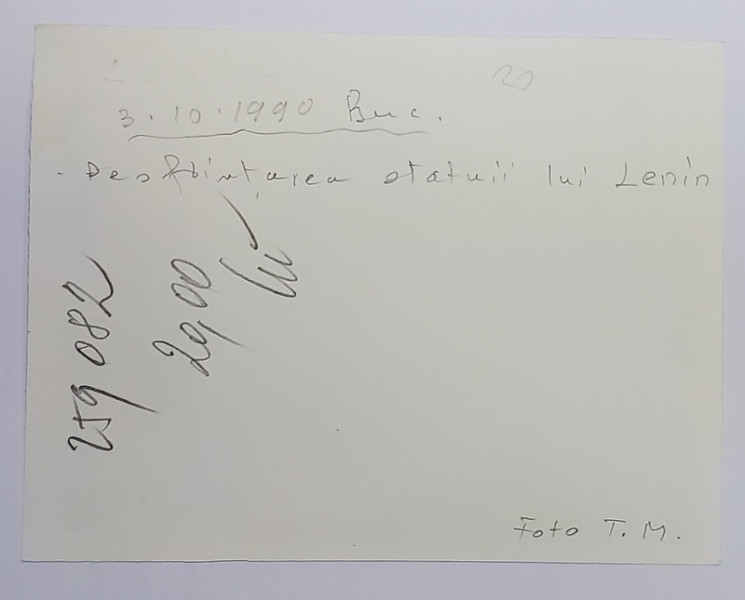 20
3.10.1990 Buc.
- Desființarea statuii lui Lenin
259082
29,00
lei
Foto T. M.